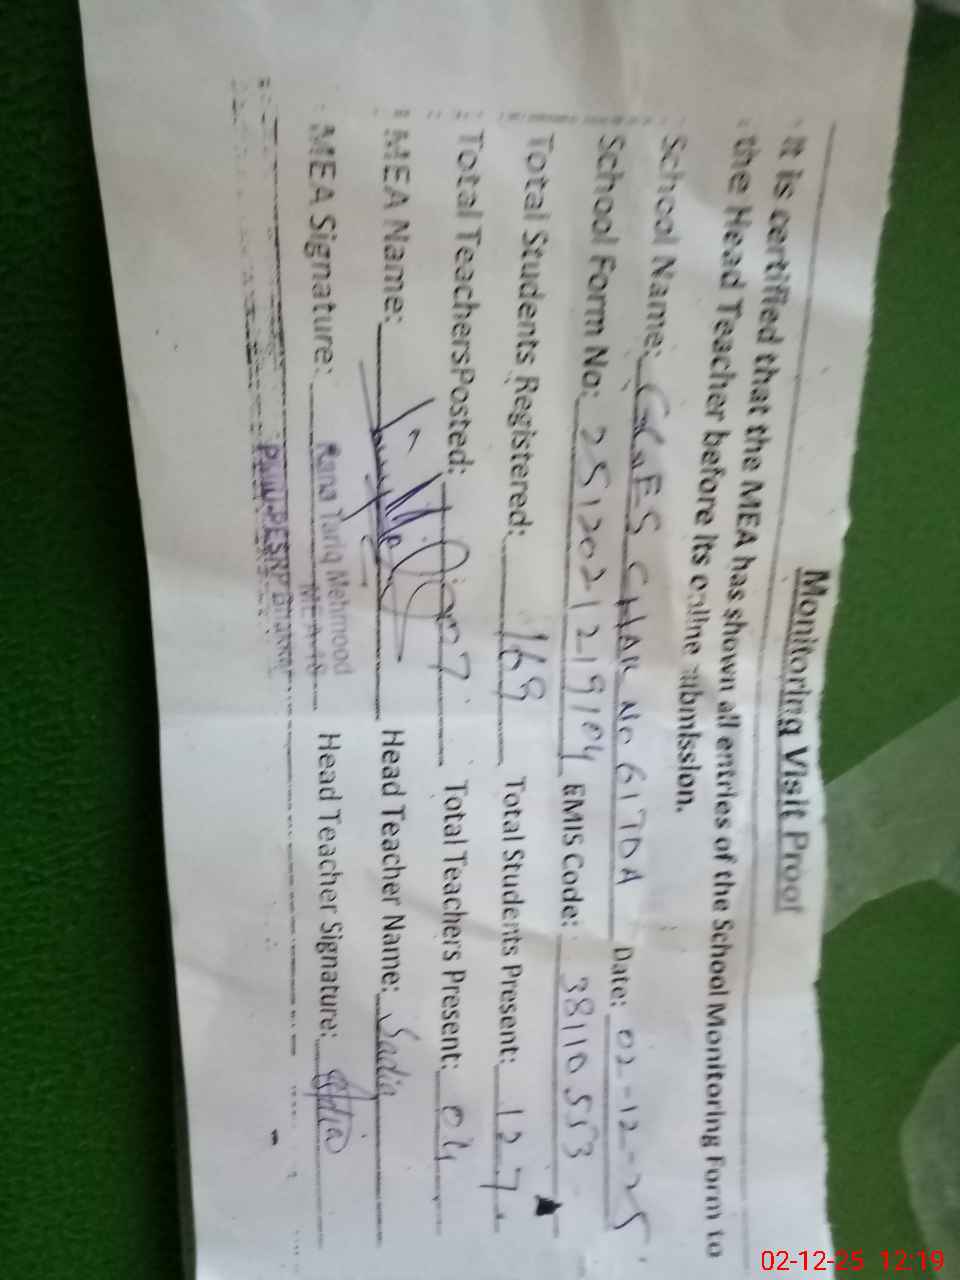 Monitoring Visit Proof
It is certified that the MEA has shown all entries of the School Monitoring Form to
the Head Teacher before its online submission.
School Name: GGES CHAK No 61 TDA Date: 02-12-25
School Form No: 2512021219104 EMIS Code: 38110553
Total Students Registered: 169 Total Students Present: 127
Total TeachersPosted: 07 Total Teachers Present: 04
MEA Name: Head Teacher Name: Sadia
MEA Signature: Rana Tariq Mehmood Head Teacher Signature: Sadia
MEA-18
PMIU-PESRP Bhakkar
02-12-25 12:19